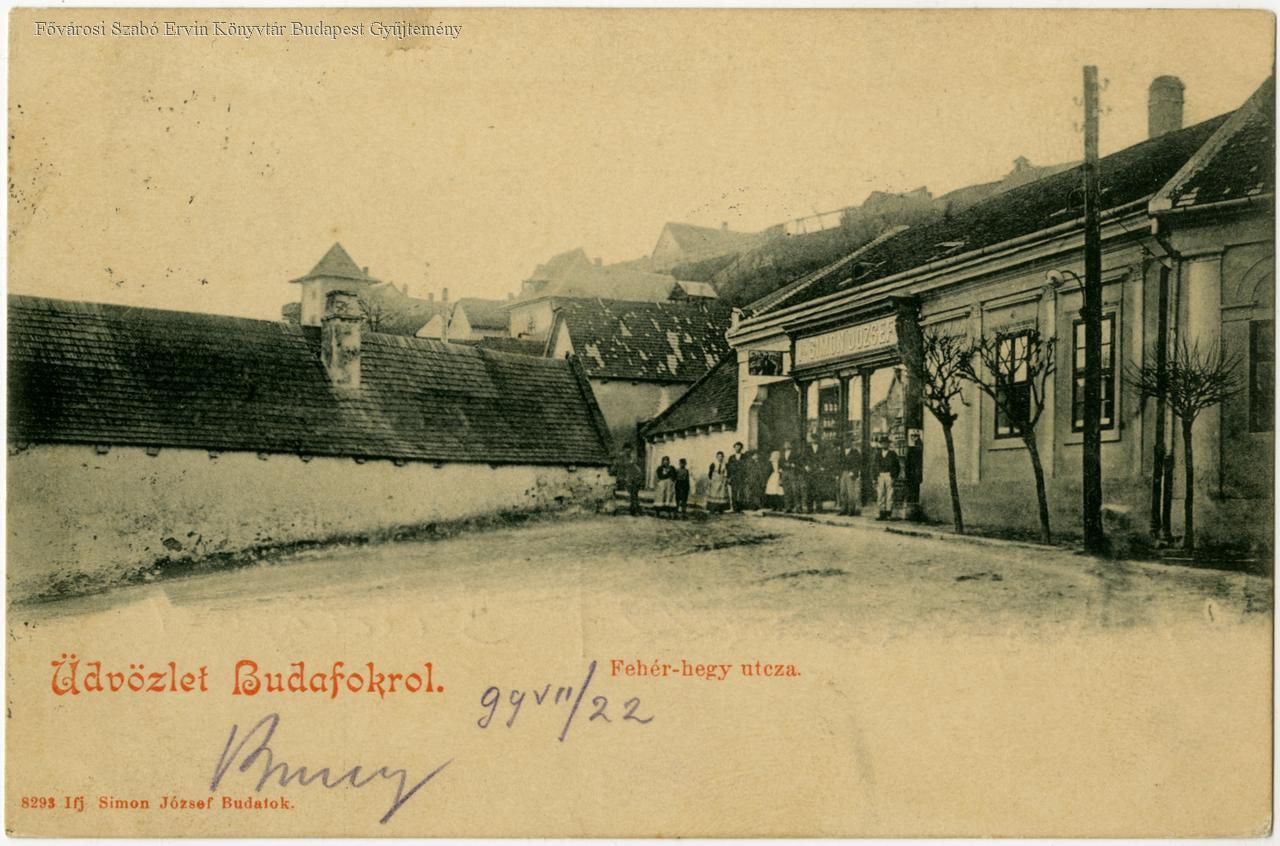 Fővárosi Szabó Ervin Könyvtár Budapest Gyűjtemény
SIMON JÓZSEF
Üdvözlet Budafokrol.
Fehér-hegy utcza.
99 VII/22
8293 Ifj Simon József Budafok.